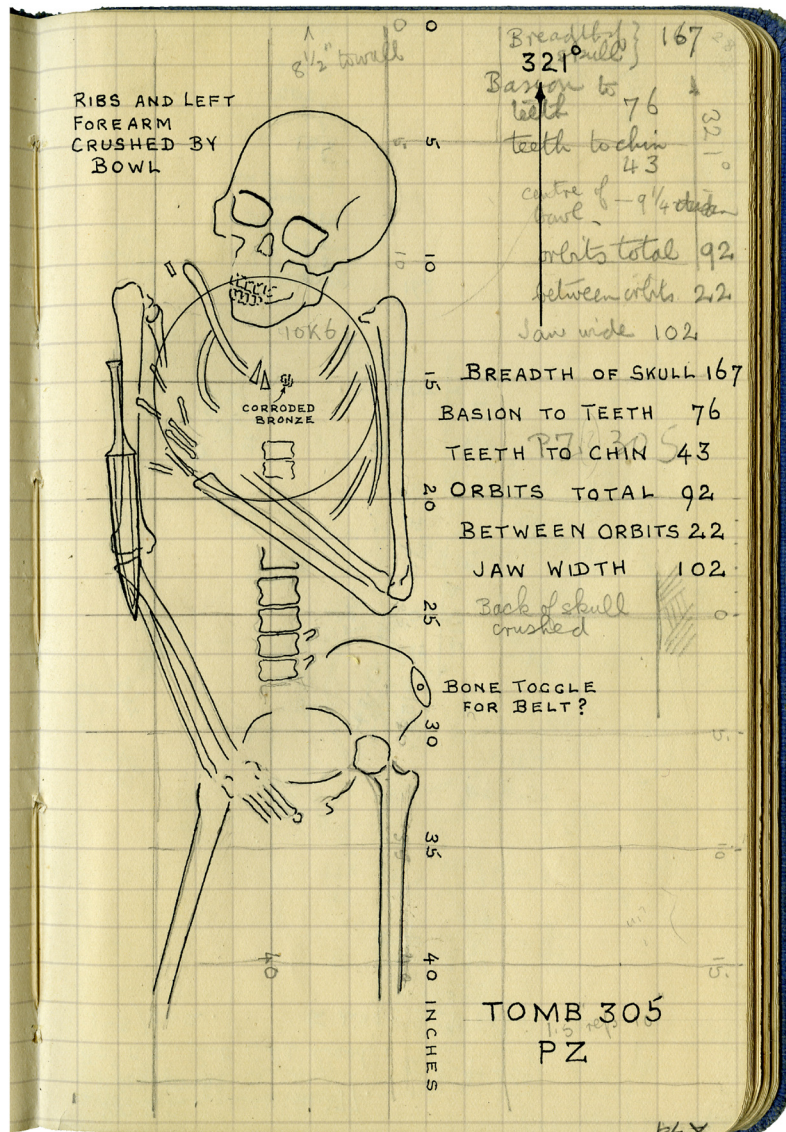 RIBS AND LEFT
FOREARM
CRUSHED BY
BOWL
8 1/2" to wall
0
5
10
15
20
25
30
35
40 INCHES
0
5
10
40
Breadth of
skull } 167
321°
Basion to
teeth 76
teeth to chin
43
321°
centre of
bowl - 9 1/4
orbits total 92
between orbits 22
Jaw wide 102
10K6
CORRODED
BRONZE
BREADTH OF SKULL 167
BASION TO TEETH 76
P7 305
TEETH TO CHIN 43
ORBITS TOTAL 92
BETWEEN ORBITS 22
JAW WIDTH 102
Back of skull
crushed
0
5
10
15
BONE TOGGLE
FOR BELT?
TOMB 305
PZ